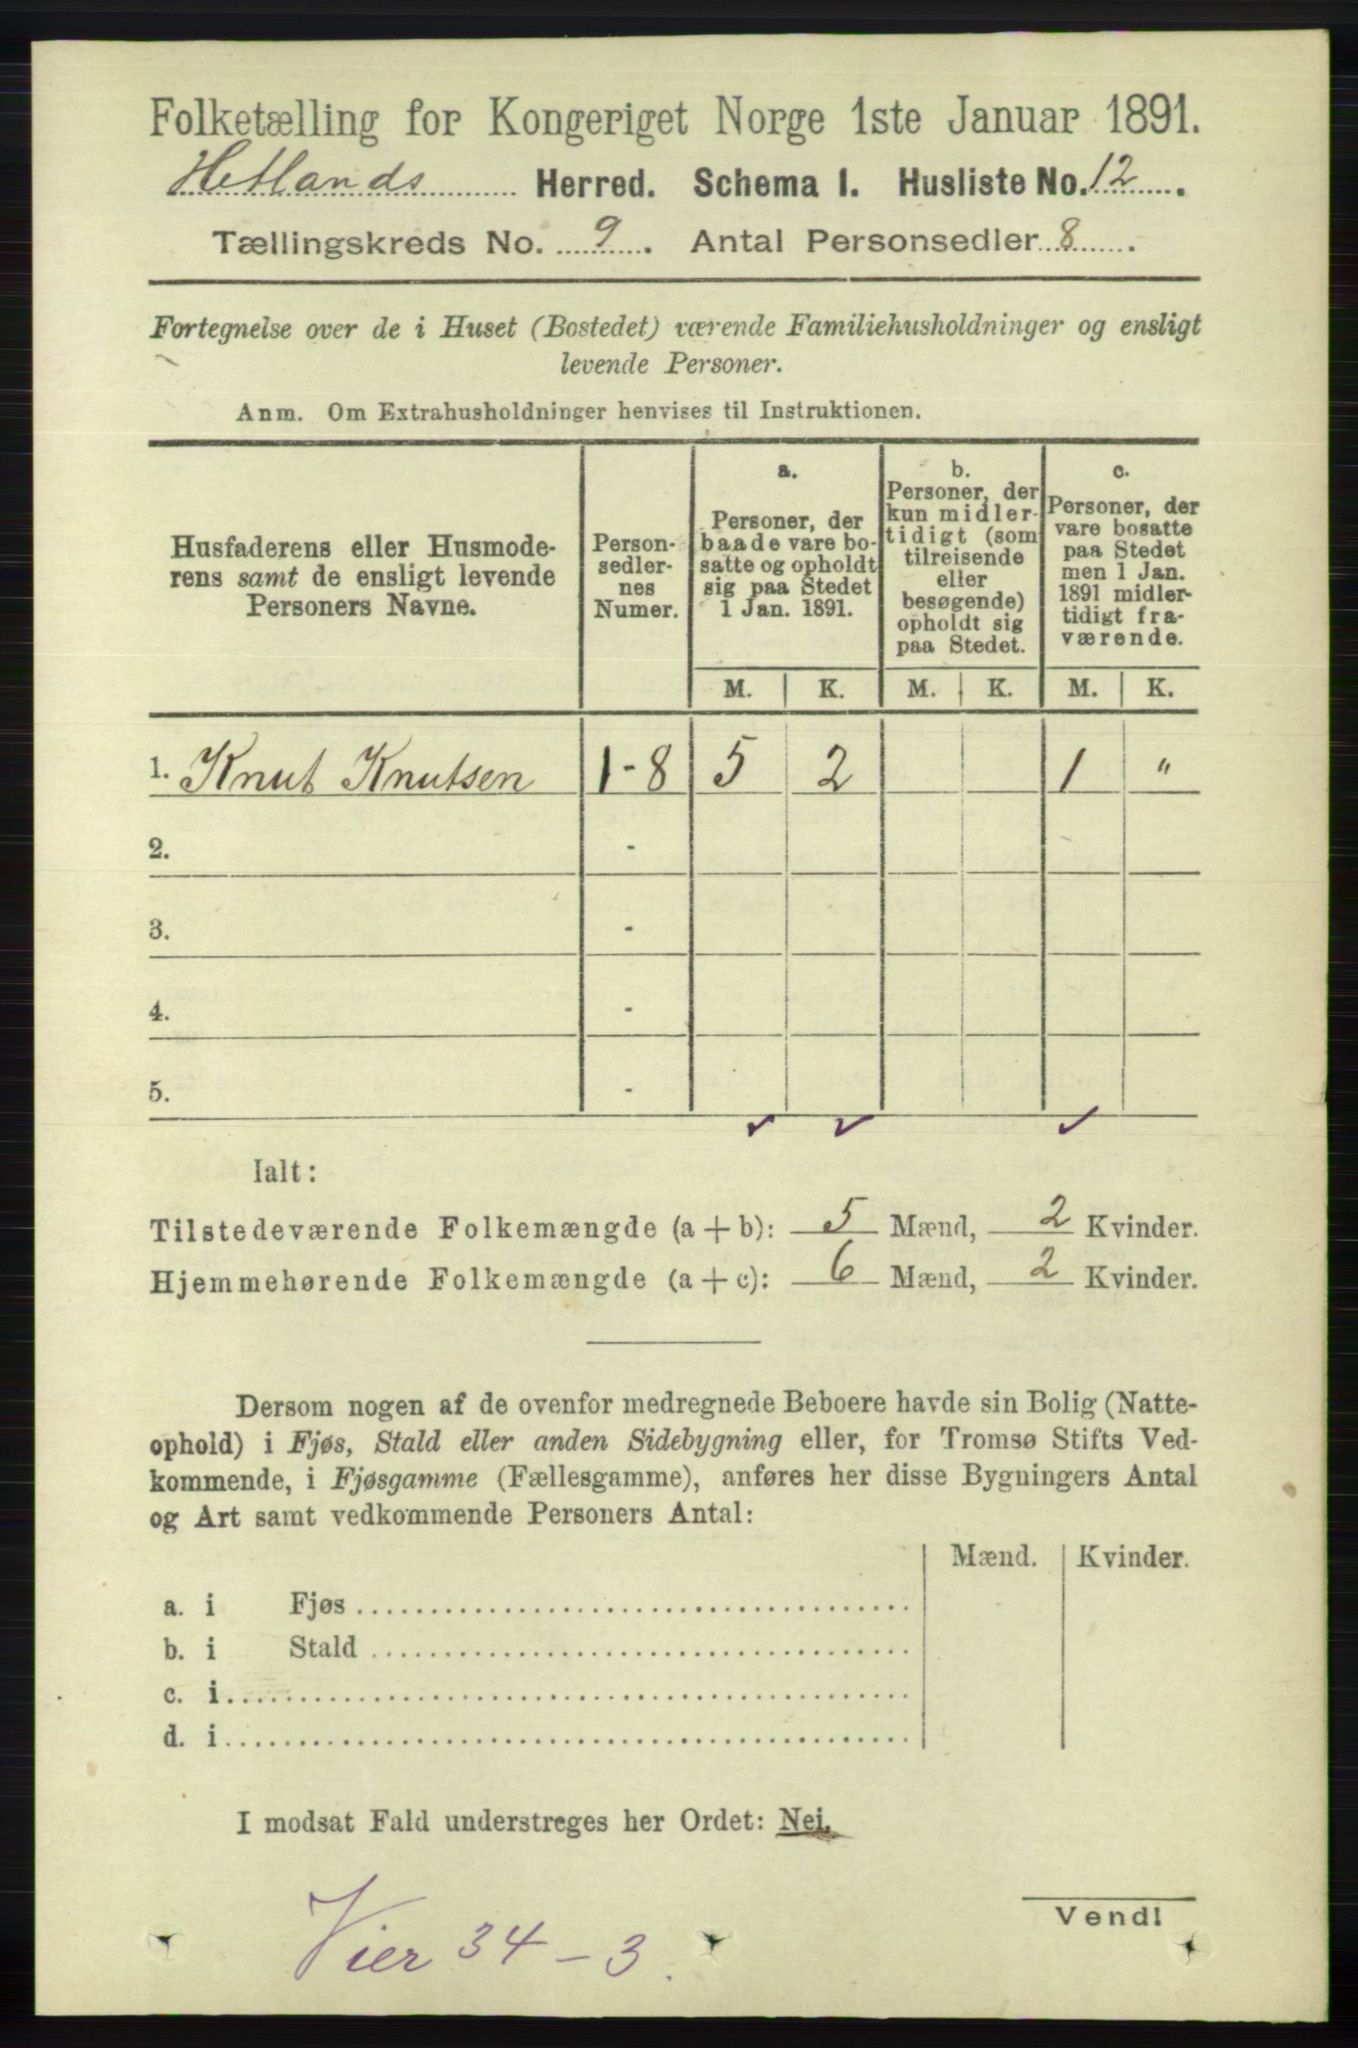 Folketælling for Kongeriget Norge 1ste Januar 1891.
Hetlands Herred. Schema I. Husliste No. 12.
Tællingskreds No. 9. Antal Personsedler 8.
Fortegnelse over de i Huset (Bostedet) værende Familiehusholdninger og ensligt
levende Personer.
Anm. Om Extrahusholdninger henvises til Instruktionen.
Husfaderens eller Husmode-
rens samt de ensligt levende
Personers Navne.
Person-
sedler-
nes
Numer.
a.
Personer, der
baade vare bo-
satte og opholdt
sig paa Stedet
1 Jan. 1891.
b.
Personer, der
kun midler-
tidigt (som
tilreisende
eller
besøgende)
opholdt sig
paa Stedet.
c.
Personer, der
vare bosatte
paa Stedet
men 1 Jan.
1891 midler-
tidigt fra-
værende.
M. K. M. K. M. K.
1. Knut Knutsen 1-8 5 2 1 "
2. -
3. -
4. -
5. -
Ialt:
Tilstedeværende Folkemængde (a + b): 5 Mænd, 2 Kvinder.
Hjemmehørende Folkemængde (a + c): 6 Mænd, 2 Kvinder.
Dersom nogen af de ovenfor medregnede Beboere havde sin Bolig (Natte-
ophold) i Fjøs, Stald eller anden Sidebygning eller, for Tromsø Stifts Ved-
kommende, i Fjøsgamme (Fællesgamme), anføres her disse Bygningers Antal
og Art samt vedkommende Personers Antal:
Mænd. Kvinder.
a. i Fjøs
b. i Stald
c. i
d. i
I modsat Fald understreges her Ordet: Nei.
Vend!
Vier 34-3.